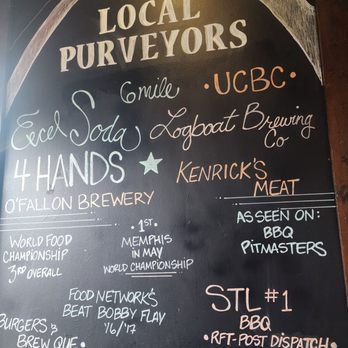 LOCAL
PURVEYORS
6mile
·UCBC·
Excel Soda
Logboat Brewing
Co
4 HANDS
KENRICK'S
MEAT
O'FALLON BREWERY
WORLD FOOD
CHAMPIONSHIP
3RD OVERALL
·1ST·
MEMPHIS
IN MAY
WORLD CHAMPIONSHIP
AS SEEN ON:
BBQ
PITMASTERS
FOOD NETWORK'S
BEAT BOBBY FLAY
'16/'17
STL #1
BBQ
·RFT·POST DISPATCH·
BURGERS &
BREW QUE·